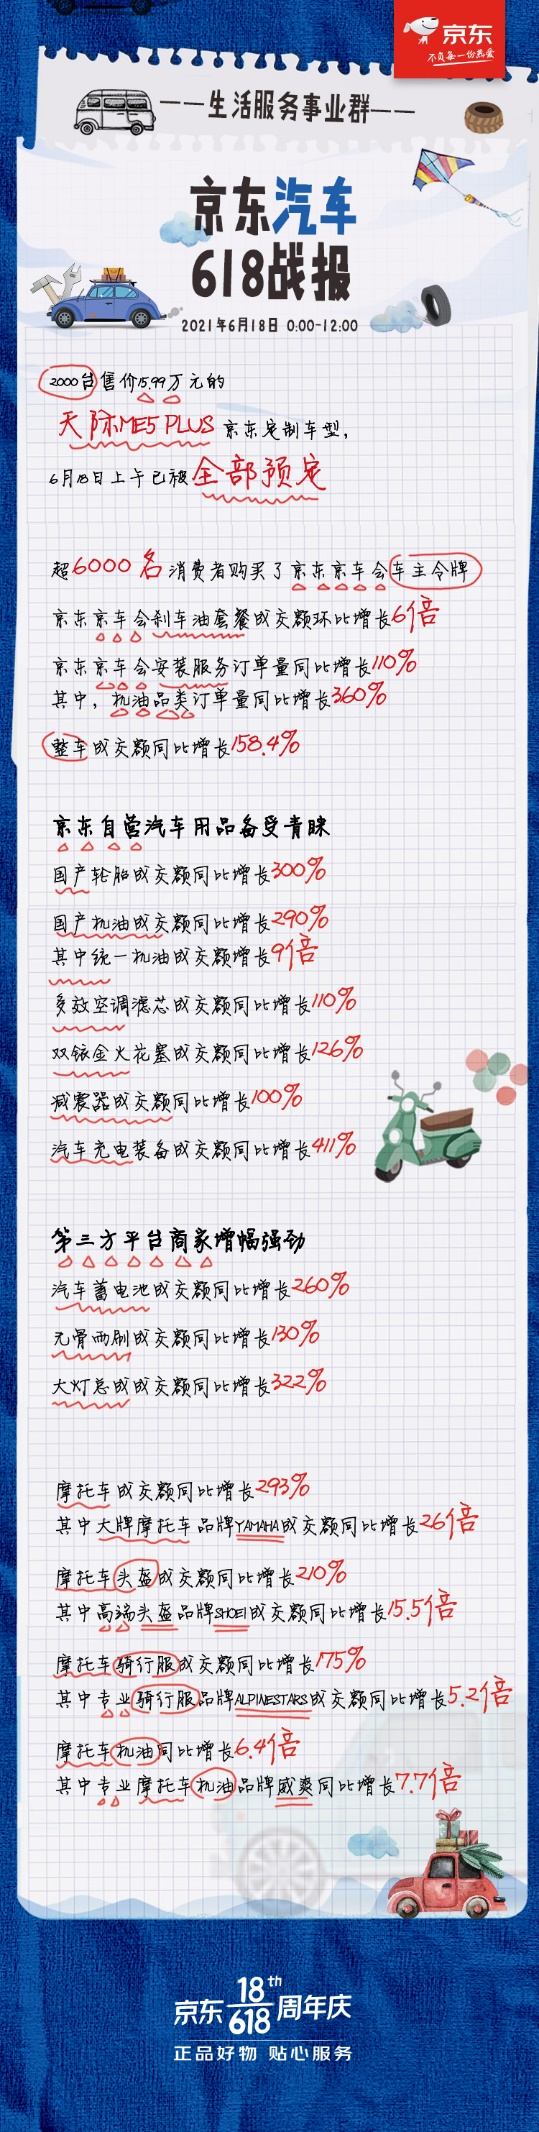 京东
不负每一份热爱
——生活服务事业群——
京东汽车
618战报
2021年6月18日 0:00-12:00
2000台售价15.99万元的
天际ME5 PLUS 京东定制车型，
6月18日上午已被全部预定
超6000名消费者购买了京东京车会车主令牌
京东京车会刹车油套餐成交额环比增长6倍
京东京车会安装服务订单量同比增长110%
其中，机油品类订单量同比增长360%
整车成交额同比增长158.4%
京东自营汽车用品备受青睐
国产轮胎成交额同比增长300%
国产机油成交额同比增长290%
其中统一机油成交额增长9倍
多效空调滤芯成交额同比增长110%
双铱金火花塞成交额同比增长126%
减震器成交额同比增长100%
汽车充电装备成交额同比增长411%
第三方平台商家增幅强劲
汽车蓄电池成交额同比增长260%
无骨雨刷成交额同比增长130%
大灯总成成交额同比增长322%
摩托车成交额同比增长293%
其中大牌摩托车品牌YAMAHA成交额同比增长26倍
摩托车头盔成交额同比增长210%
其中高端头盔品牌SHOEI成交额同比增长15.5倍
摩托车骑行服成交额同比增长175%
其中专业骑行服品牌ALPINESTARS成交额同比增长5.2倍
摩托车机油同比增长6.4倍
其中专业摩托车机油品牌威爽同比增长7.7倍
京东 18th 618 周年庆
正品好物 贴心服务